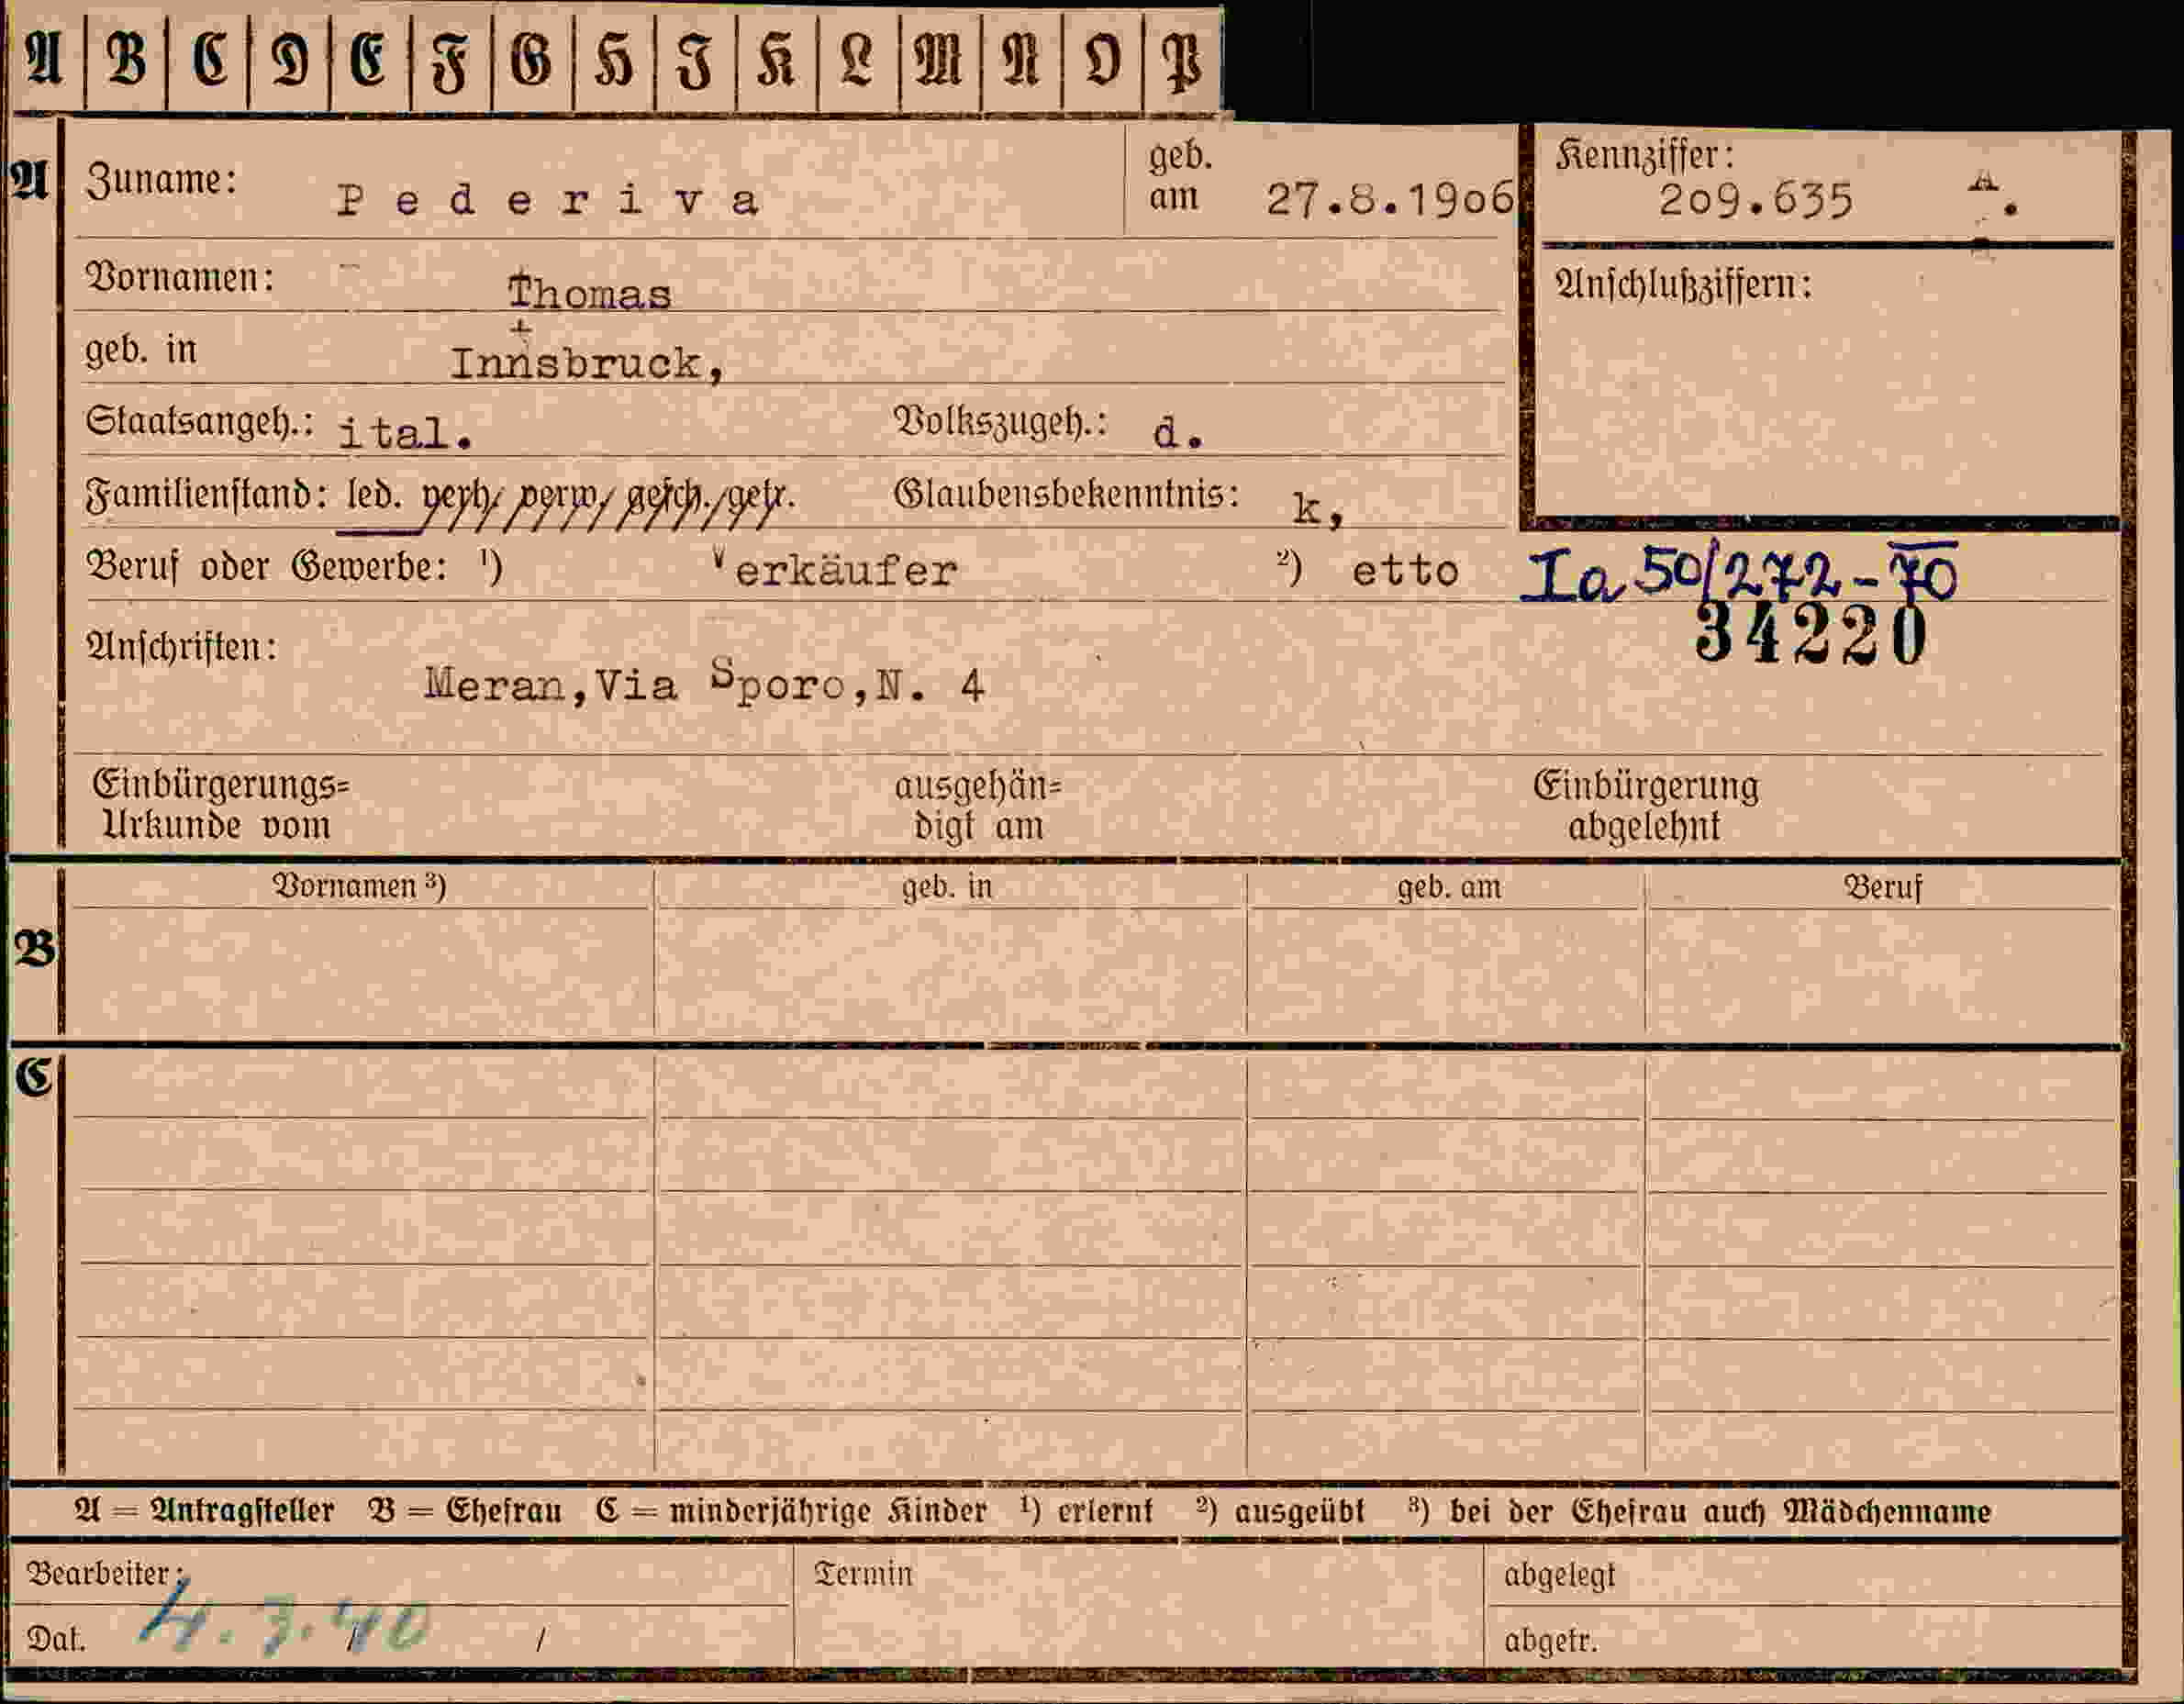 A B C D E F G H J K L M N O P
A Zuname: Pederiva geb. am 27.8.1906 Kennziffer: 209.635 A.
Vornamen: Thomas Anschlußziffern:
geb. in Innsbruck,
Staatsangeh.: ital. Volkszugeh.: d.
Familienstand: led. verh/ verw/ gesch./getr. Glaubensbekenntnis: k,
Beruf oder Gewerbe: ¹) Verkäufer ²) etto Ia 50/272-70
34220
Anschriften:
Meran,Via Sporo,N. 4
Einbürgerungs= ausgehän= Einbürgerung
Urkunde vom digt am abgelehnt
Vornamen ³) geb. in geb. am Beruf
B
C
A = Antragsteller B = Ehefrau C = minderjährige Kinder ¹) erlernt ²) ausgeübt ³) bei der Ehefrau auch Mädchenname
Bearbeiter: Termin abgelegt
Dat. 4.3.40 / abgetr.